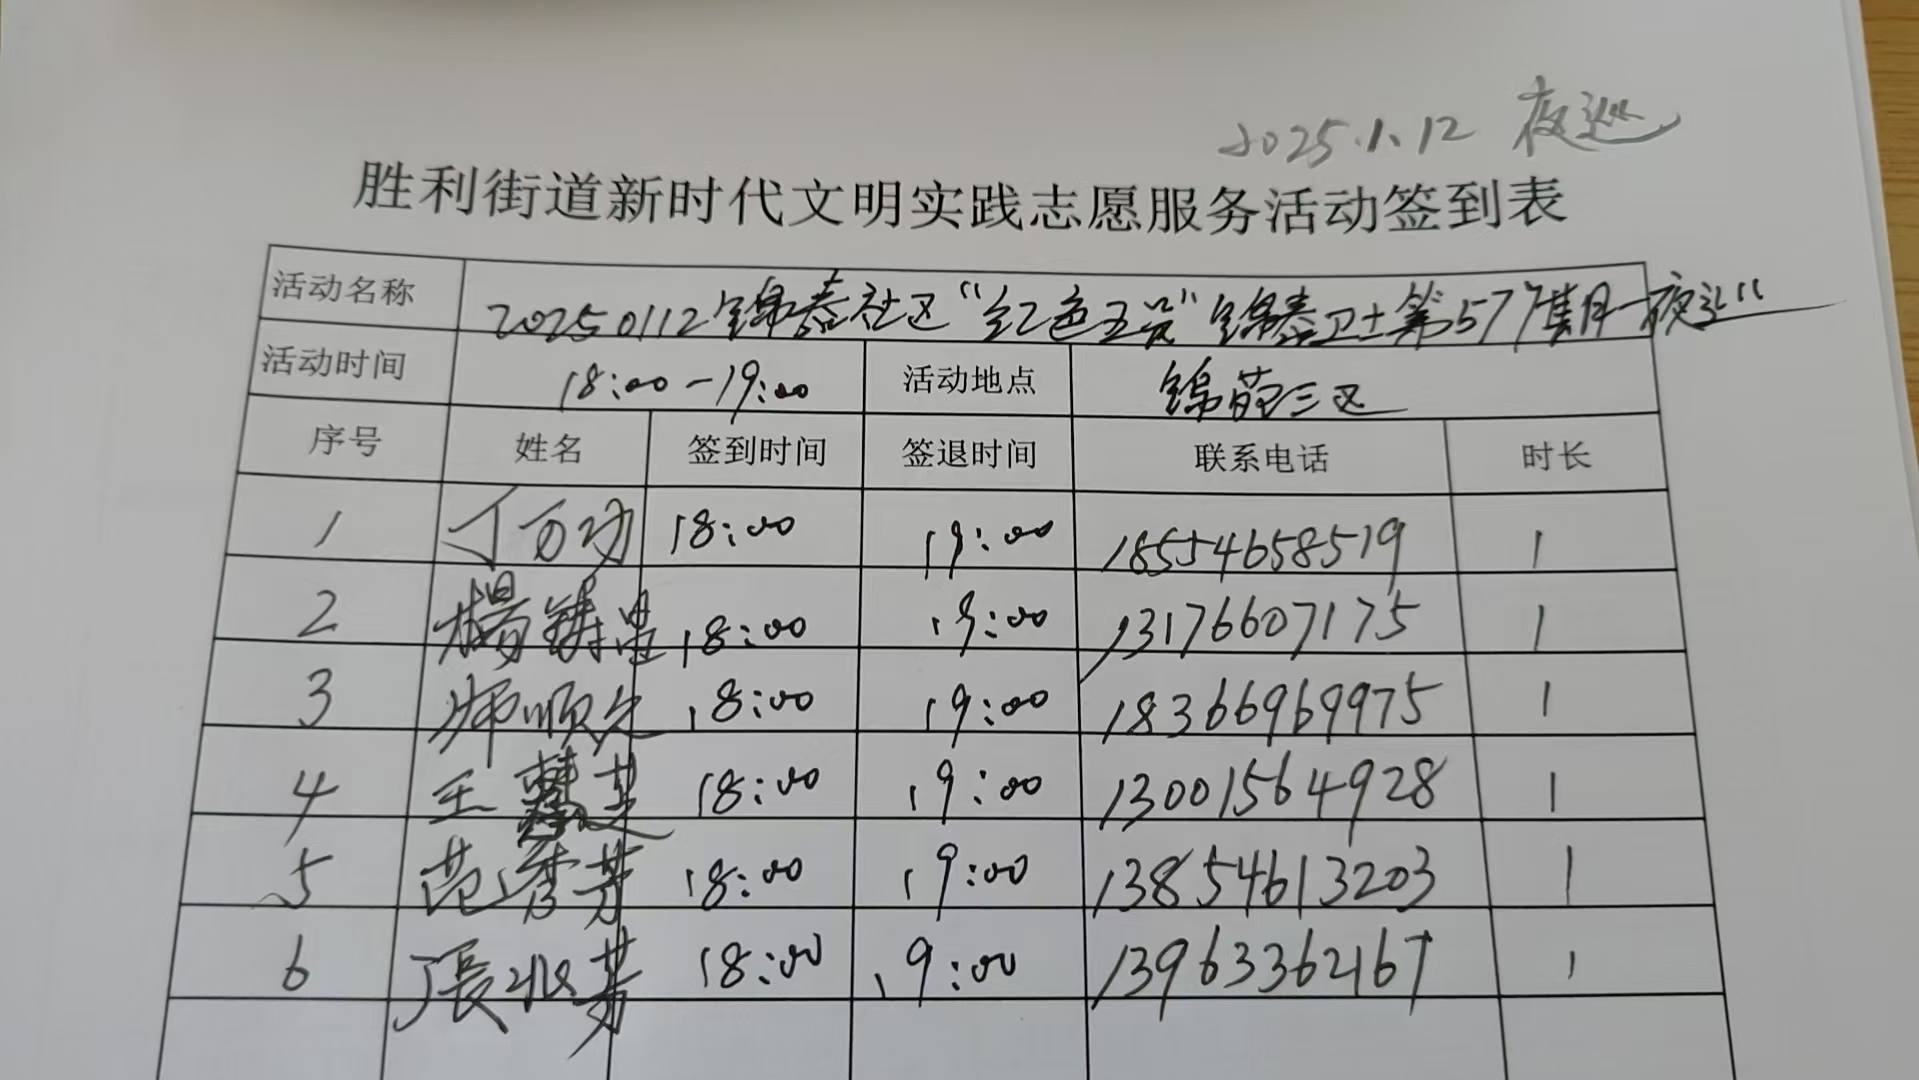 2025.1.12 夜巡
胜利街道新时代文明实践志愿服务活动签到表
活动名称 20250112锦泰社区“红色五员”锦泰卫士第57 夜巡
活动时间 18:00-19:00 活动地点 锦苑三区
序号 姓名 签到时间 签退时间 联系电话 时长
1 丁百功 18:00 19:00 18554658519 1
2 杨铸 18:00 19:00 13176607175 1
3 师顺 18:00 19:00 18366969975 1
4 王 芝 18:00 19:00 13001564928 1
5 范秀芳 18:00 19:00 13854613203 1
6 張 芳 18:00 19:00 13963362167 1